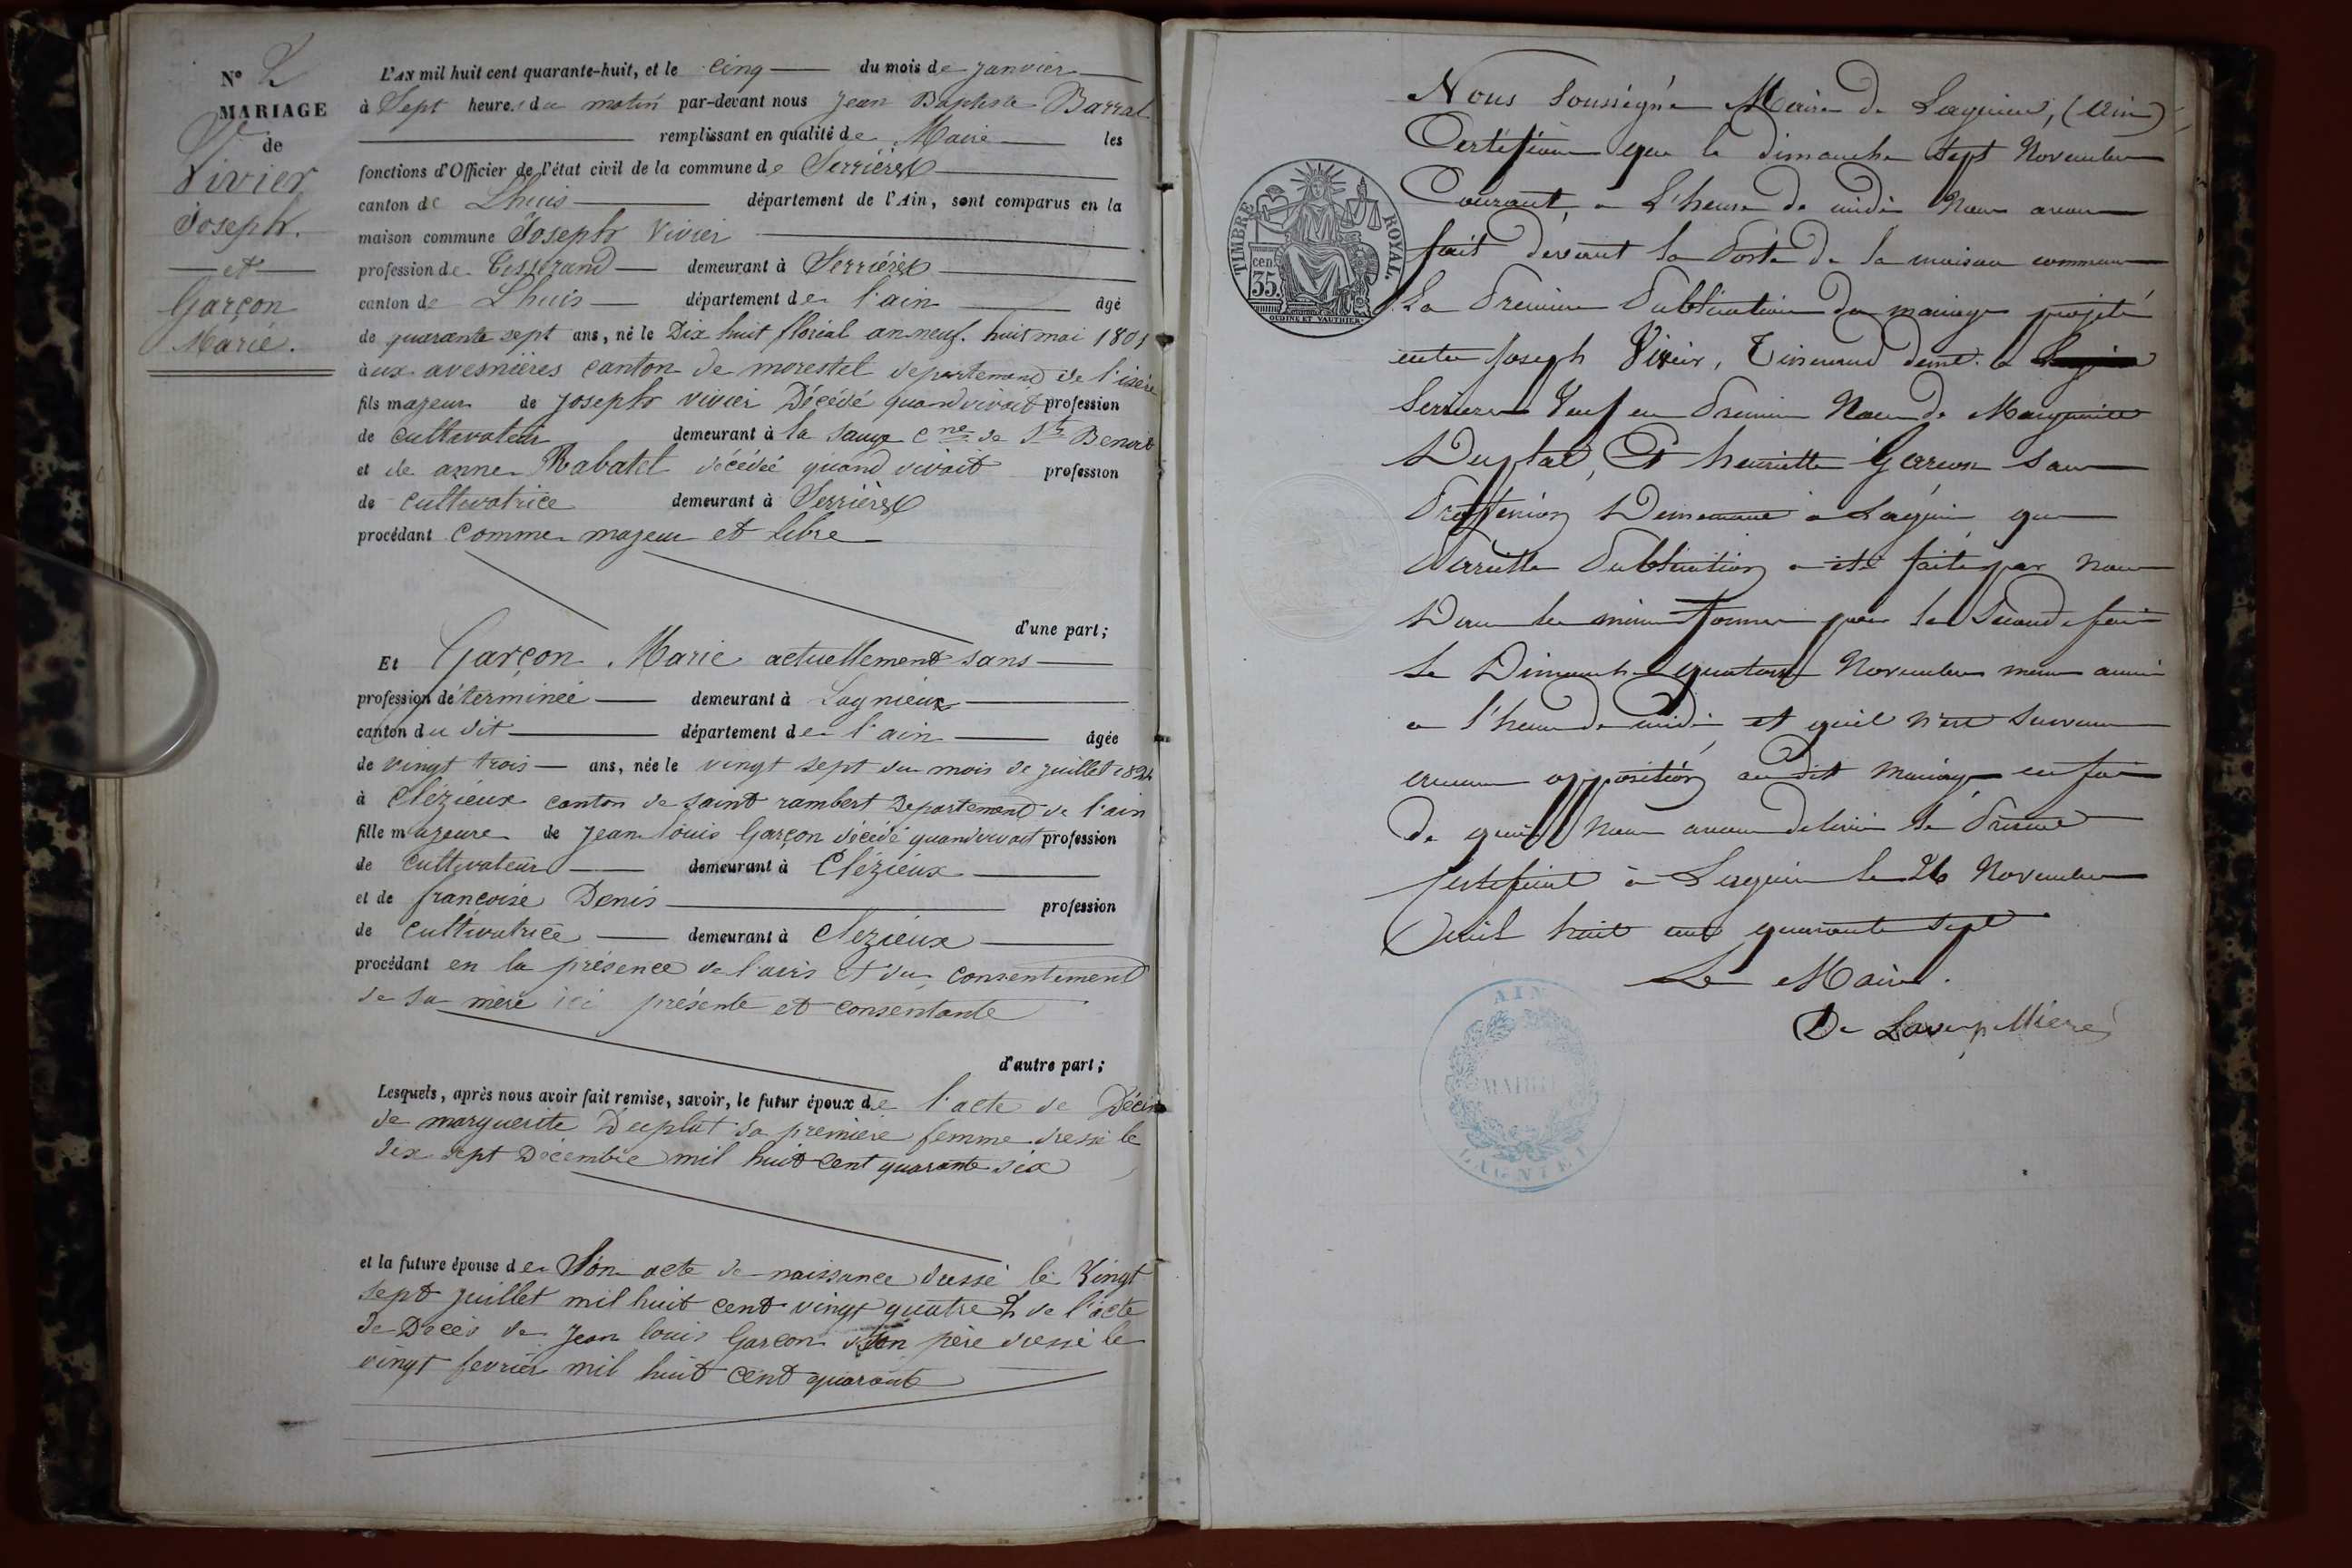 N° 2
MARIAGE
de
Vivier
Joseph.
et
Garçon
Marie.
L'AN mil huit cent quarante-huit, et le cinq du mois de janvier
à Sept heures du matin par-devant nous Jean Baptiste Barral
remplissant en qualité de Maire les
fonctions d'Officier de l'état civil de la commune de Serrières
canton de Lhuis département de l'Ain, sont comparus en la
maison commune Joseph Vivier
profession de Tisserand demeurant à Serrières
canton de Lhuis département de l'ain âgé
de quarante sept ans, né le Dix huit floréal an neuf. huit mai 1801
aux avesnières canton de morestel departement de l'isère
fils majeur de joseph vivier Décédé quand vivait profession
de cultivateur demeurant à la sauge cne de St Benoit
et de anne Rabatel décédée quand vivait profession
de cultivatrice demeurant à Serrières
procédant comme majeur et libre
d'une part;
Et Garçon Marie actuellement sans
profession déterminée demeurant à Lagnieux
canton du dit département de l'ain âgée
de vingt trois ans, née le vingt sept du mois de juillet 1824
à Clézieux canton de saint rambert Departement de l'ain
fille majeure de jean louis Garçon décédé quand vivait profession
de cultivateur demeurant à Clézieux
et de françoise Denis profession
de cultivatrice demeurant à Clezieux
procédant en la présence de l'avis et du consentement
de sa mère ici présente et consentante
d'autre part;
Lesquels, après nous avoir fait remise, savoir, le futur époux de l'acte de Décès
de marguerite Duplat sa premiere femme dressé le
dix sept Décembre mil huit cent quarante six
et la future épouse de Son acte de naissance dressé le Vingt
sept juillet mil huit cent vingt quatre & de l'acte
de Décès de Jean louis Garçon son père dressé le
vingt fevrier mil huit cent quarante
TIMBRE ROYAL.
35 cent
OUDINE ET VAUTHIER
Nous soussigné Maire de Lagnieu, (Ain)
Certifions que le dimanche sept Novembre
Courant, a l'heure de midi Nous avons
fait devant la Porte de la maison commune
La Premiere Publication du mariage projeté
entre Joseph Vivier, Tisserand demt. a
Serrieres Veuf en Premier Noces de Marguerite
Duplat, Et henriette Garcon sans
Profession Demeurant a Lagnieu que
Pareille Publication a été faite par nous
Dans la même forme pour la Seconde fois
Le Dimanche quatorze Novembre meme année
a l'heure de midi et qu'il n'est survenu
aucune opposition au dit Mariage en foi
de quoi Nous avons délivré le Présent
Certificat à Lagnieu le 26 Novembre
Mil huit cent quarante sept
Le Maire.
De Lavespillière
AIN
MAIRIE
LAGNIEU